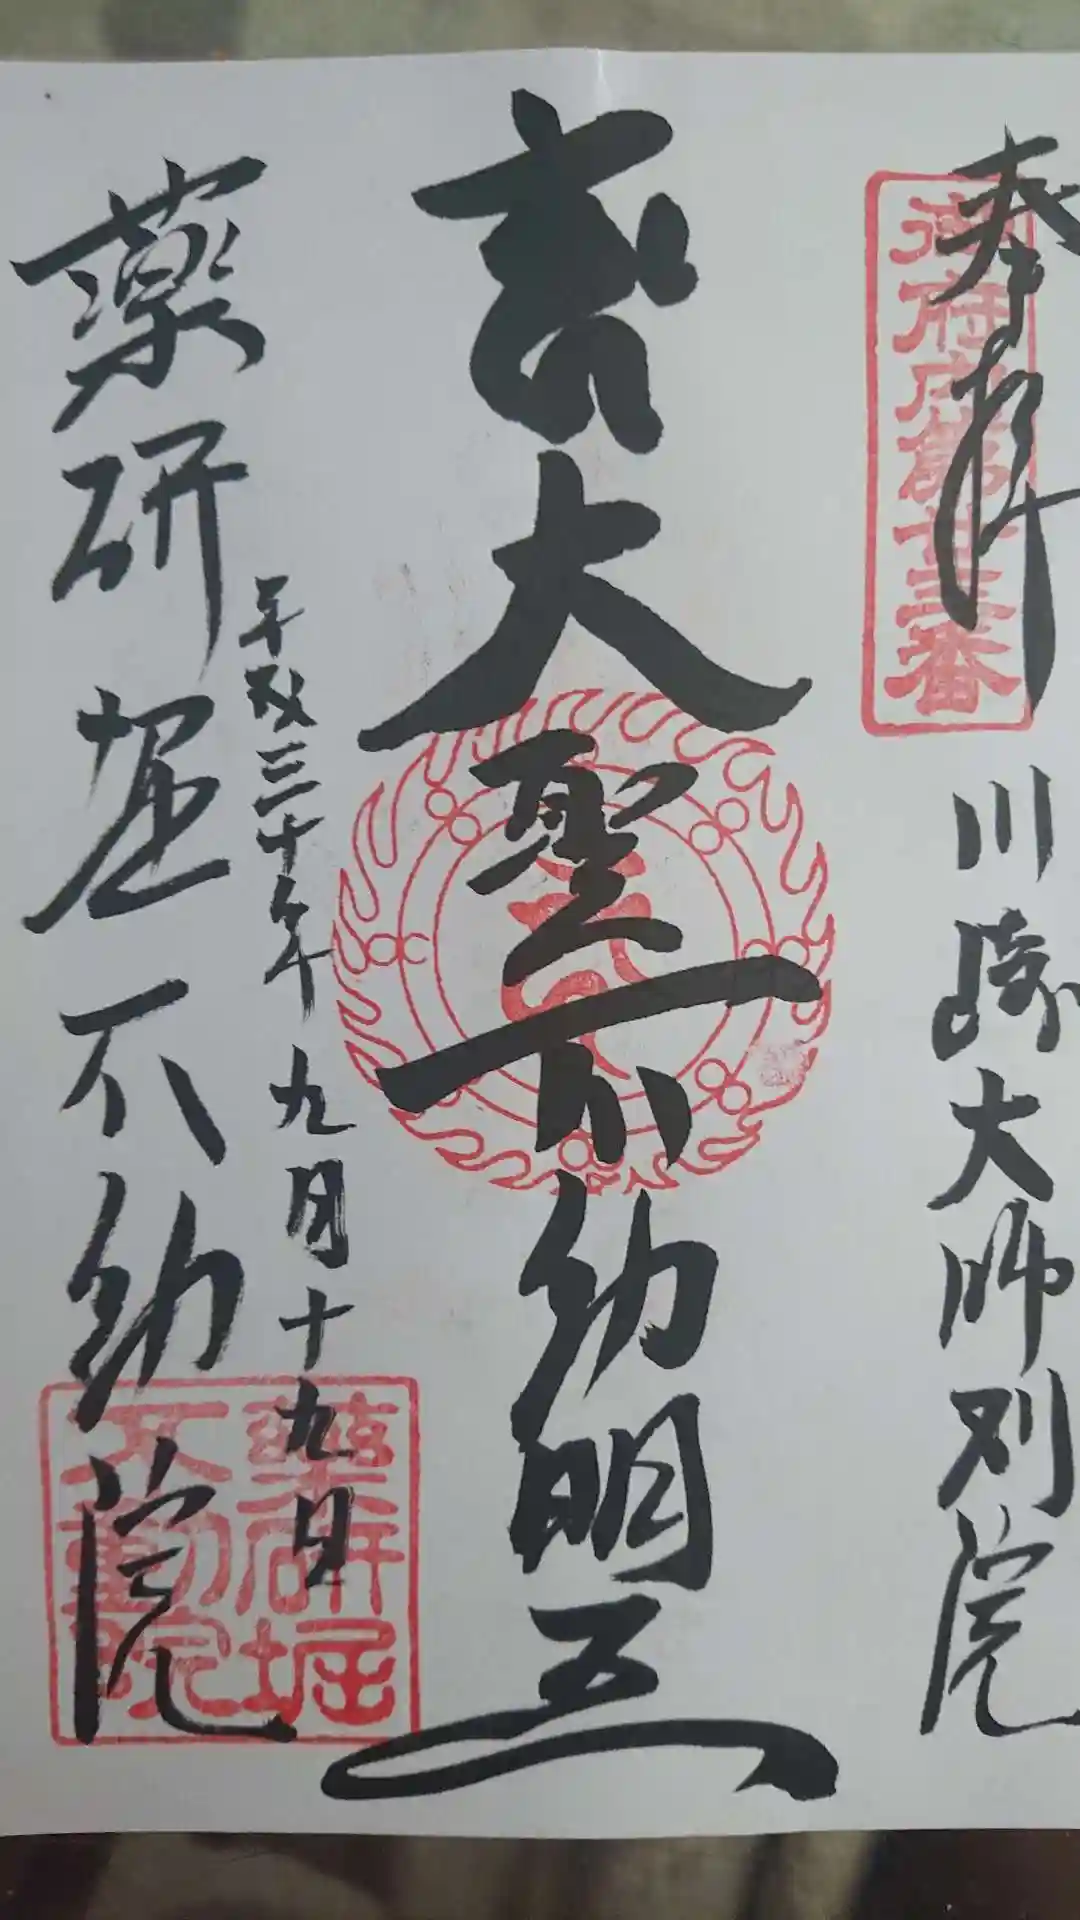 奉拝
御府内第廿三番
川崎大師別院
本大聖不動明王
平成三十年九月十九日
薬研堀不動院
薬研堀
不動院